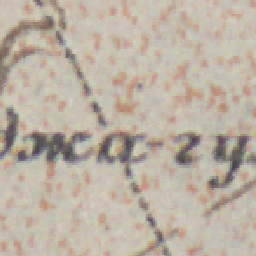 джа-гу